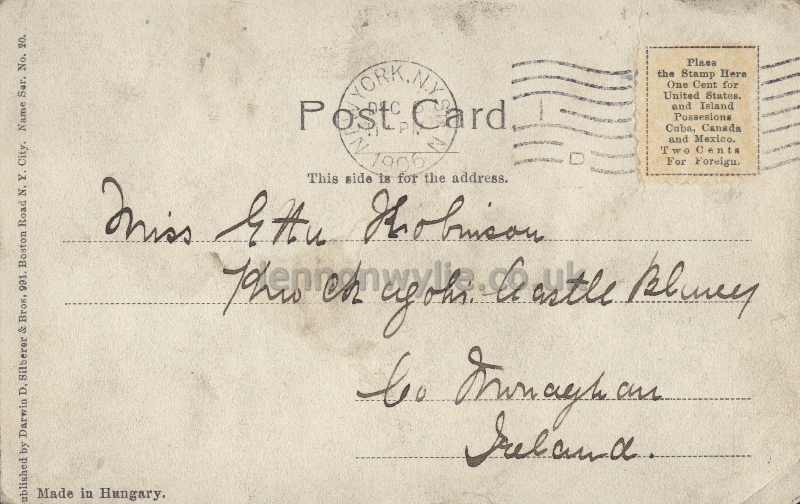 Post Card.
This side is for the address.
NEW YORK, N.Y. STA. N
DEC
PM
1906
D
Place
the Stamp Here
One Cent for
United States.
and Island
Possesions
Cuba, Canada
and Mexico.
Two Cents
For Foreign.
Miss Etta Robinson
lennonwylie.co.uk
Castle Blaney
Co Monaghan
Ireland.
ublished by Darwin D. Silberer & Bros. 991. Boston Road N. Y. City. Name Ser. No. 20.
Made in Hungary.